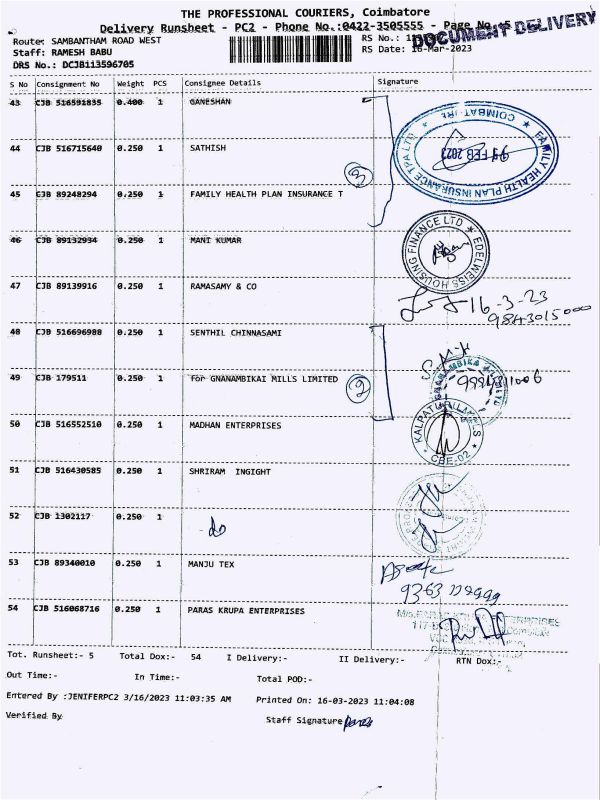 THE PROFESSIONAL COURIERS, Coimbatore
Delivery Runsheet - PC2 - Phone No.:0422-3505555 - Page No. 5
DOCUMENT DELIVERY
Route: SAMBANTHAM ROAD WEST
RS No.:
Staff: RAMESH BABU
RS Date: 16-Mar-2023
DRS No.: DCJB113596705
S No Consignment No Weight PCS Consignee Details Signature
43 CJB 516591835 0.400 1 GANESHAN
44 CJB 516715640 0.250 1 SATHISH
FAMILY HEALTH PLAN INSURANCE TPA LTD
FEB 2023
3
45 CJB 89248294 0.250 1 FAMILY HEALTH PLAN INSURANCE T
46 CJB 89132934 0.250 1 MANI KUMAR
EDELWEISS HOUSING FINANCE LTD
47 CJB 89139916 0.250 1 RAMASAMY & CO
16-3-23
9843015000
48 CJB 516696988 0.250 1 SENTHIL CHINNASAMI
49 CJB 179511 0.250 1 For GNANAMBIKAI MILLS LIMITED
2
50 CJB 516552510 0.250 1 MADHAN ENTERPRISES
CBE-02
51 CJB 516430585 0.250 1 SHRIRAM INGIGHT
52 CJB 1302117 0.250 1
do
53 CJB 89340010 0.250 1 MANJU TEX
54 CJB 516068716 0.250 1 PARAS KRUPA ENTERPRISES
Tot. Runsheet:- 5 Total Dox:- 54 I Delivery:- II Delivery:- RTN Dox:-
Out Time:- In Time:- Total POD:-
Entered By :JENIFERPC2 3/16/2023 11:03:35 AM Printed On: 16-03-2023 11:04:08
Verified By Staff Signature